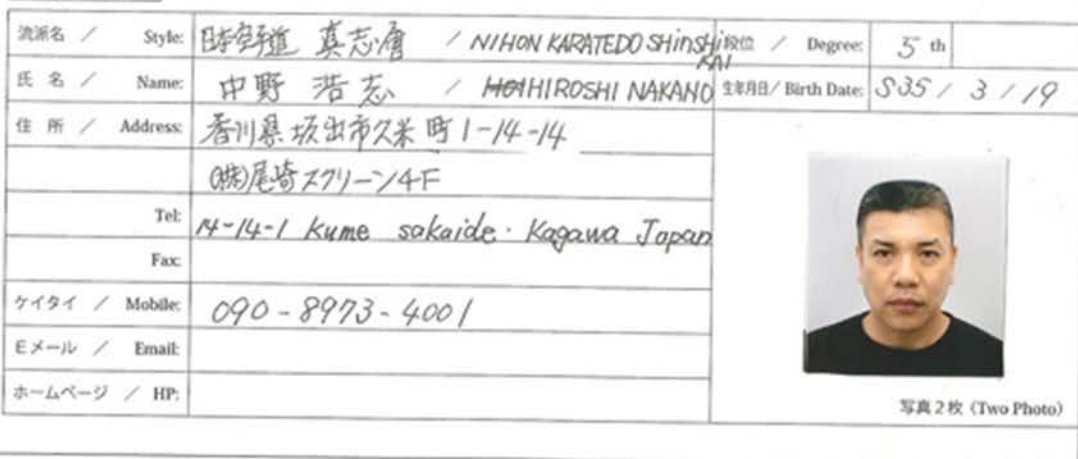 流派名 / Style: 日本空手道 真志會 / NIHON KARATEDO SHINSHI KAI 段位 / Degree: 5 th
氏名 / Name: 中野 浩志 / HIROSHI NAKANO 生年月日 / Birth Date: S35 / 3 / 19
住所 / Address: 香川県坂出市久米町1-14-14
(株)尾崎スクリーン4F
Tel: 14-14-1 Kume sakaide. Kagawa Japan
Fax:
ケイタイ / Mobile: 090-8973-4001
Eメール / Email:
ホームページ / HP:
写真2枚 (Two Photo)